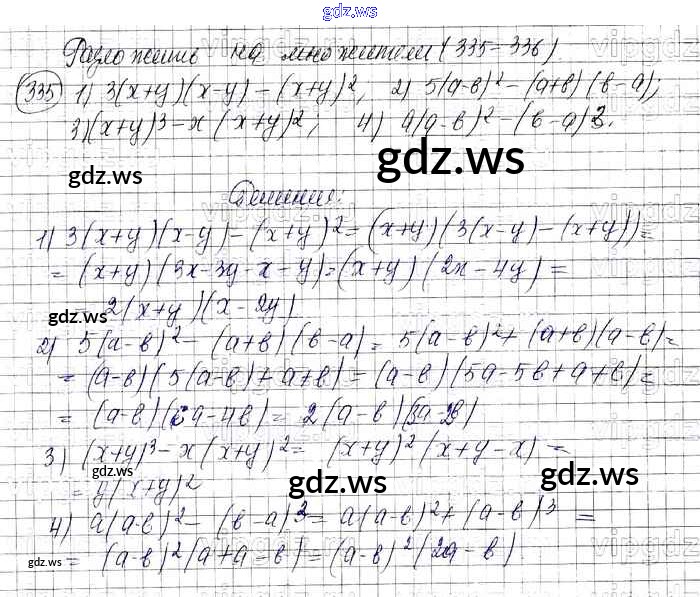 gdz.ws
Разложить на множители (335-336)
335 1) 3(x+y)(x-y)-(x+y)², 2) 5(a-b)²-(a+b)(b-a);
3) (x+y)³-x(x+y)²; 4) a(a-b)²-(b-a)3.
gdz.ws gdz.ws
Решение:
1) 3(x+y)(x-y)-(x+y)²=(x+y)(3(x-y)-(x+y))=
= (x+y)(3x-3y-x-y)=(x+y)(2x-4y)=
2(x+y)(x-2y)
gdz.ws gdz.ws
2) 5(a-b)²-(a+b)(b-a)= 5(a-b)²+(a+b)(a-b)=
= (a-b)(5(a-b)+a+b)=(a-b)(5a-5b+a+b)=
= (a-b)(6a-4b)= 2(a-b)(3a-2b)
3) (x+y)³-x(x+y)²= (x+y)²(x+y-x)=
gdz.ws gdz.ws gdz.ws
= y(x+y)²
4) a(a-b)²-(b-a)³=a(a-b)²+(a-b)³=
gdz.ws = (a-b)²(a+a-b)=(a-b)²(2a-b) gdz.ws